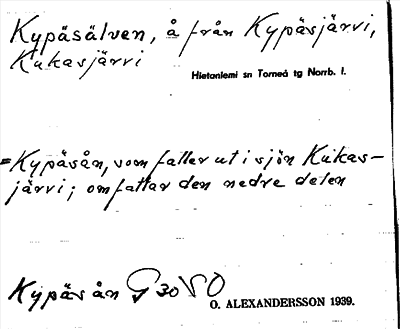 Kypäsälven, å från Kypäsjärvi,
Kukasjärvi
Hietaniemi sn Torneå tg Norrb. l.
=Kypäsån, som faller ut i sjön Kukas-
järvi; omfattar den nedre delen
Kypäsån G 30 SO
O. ALEXANDERSSON 1939.